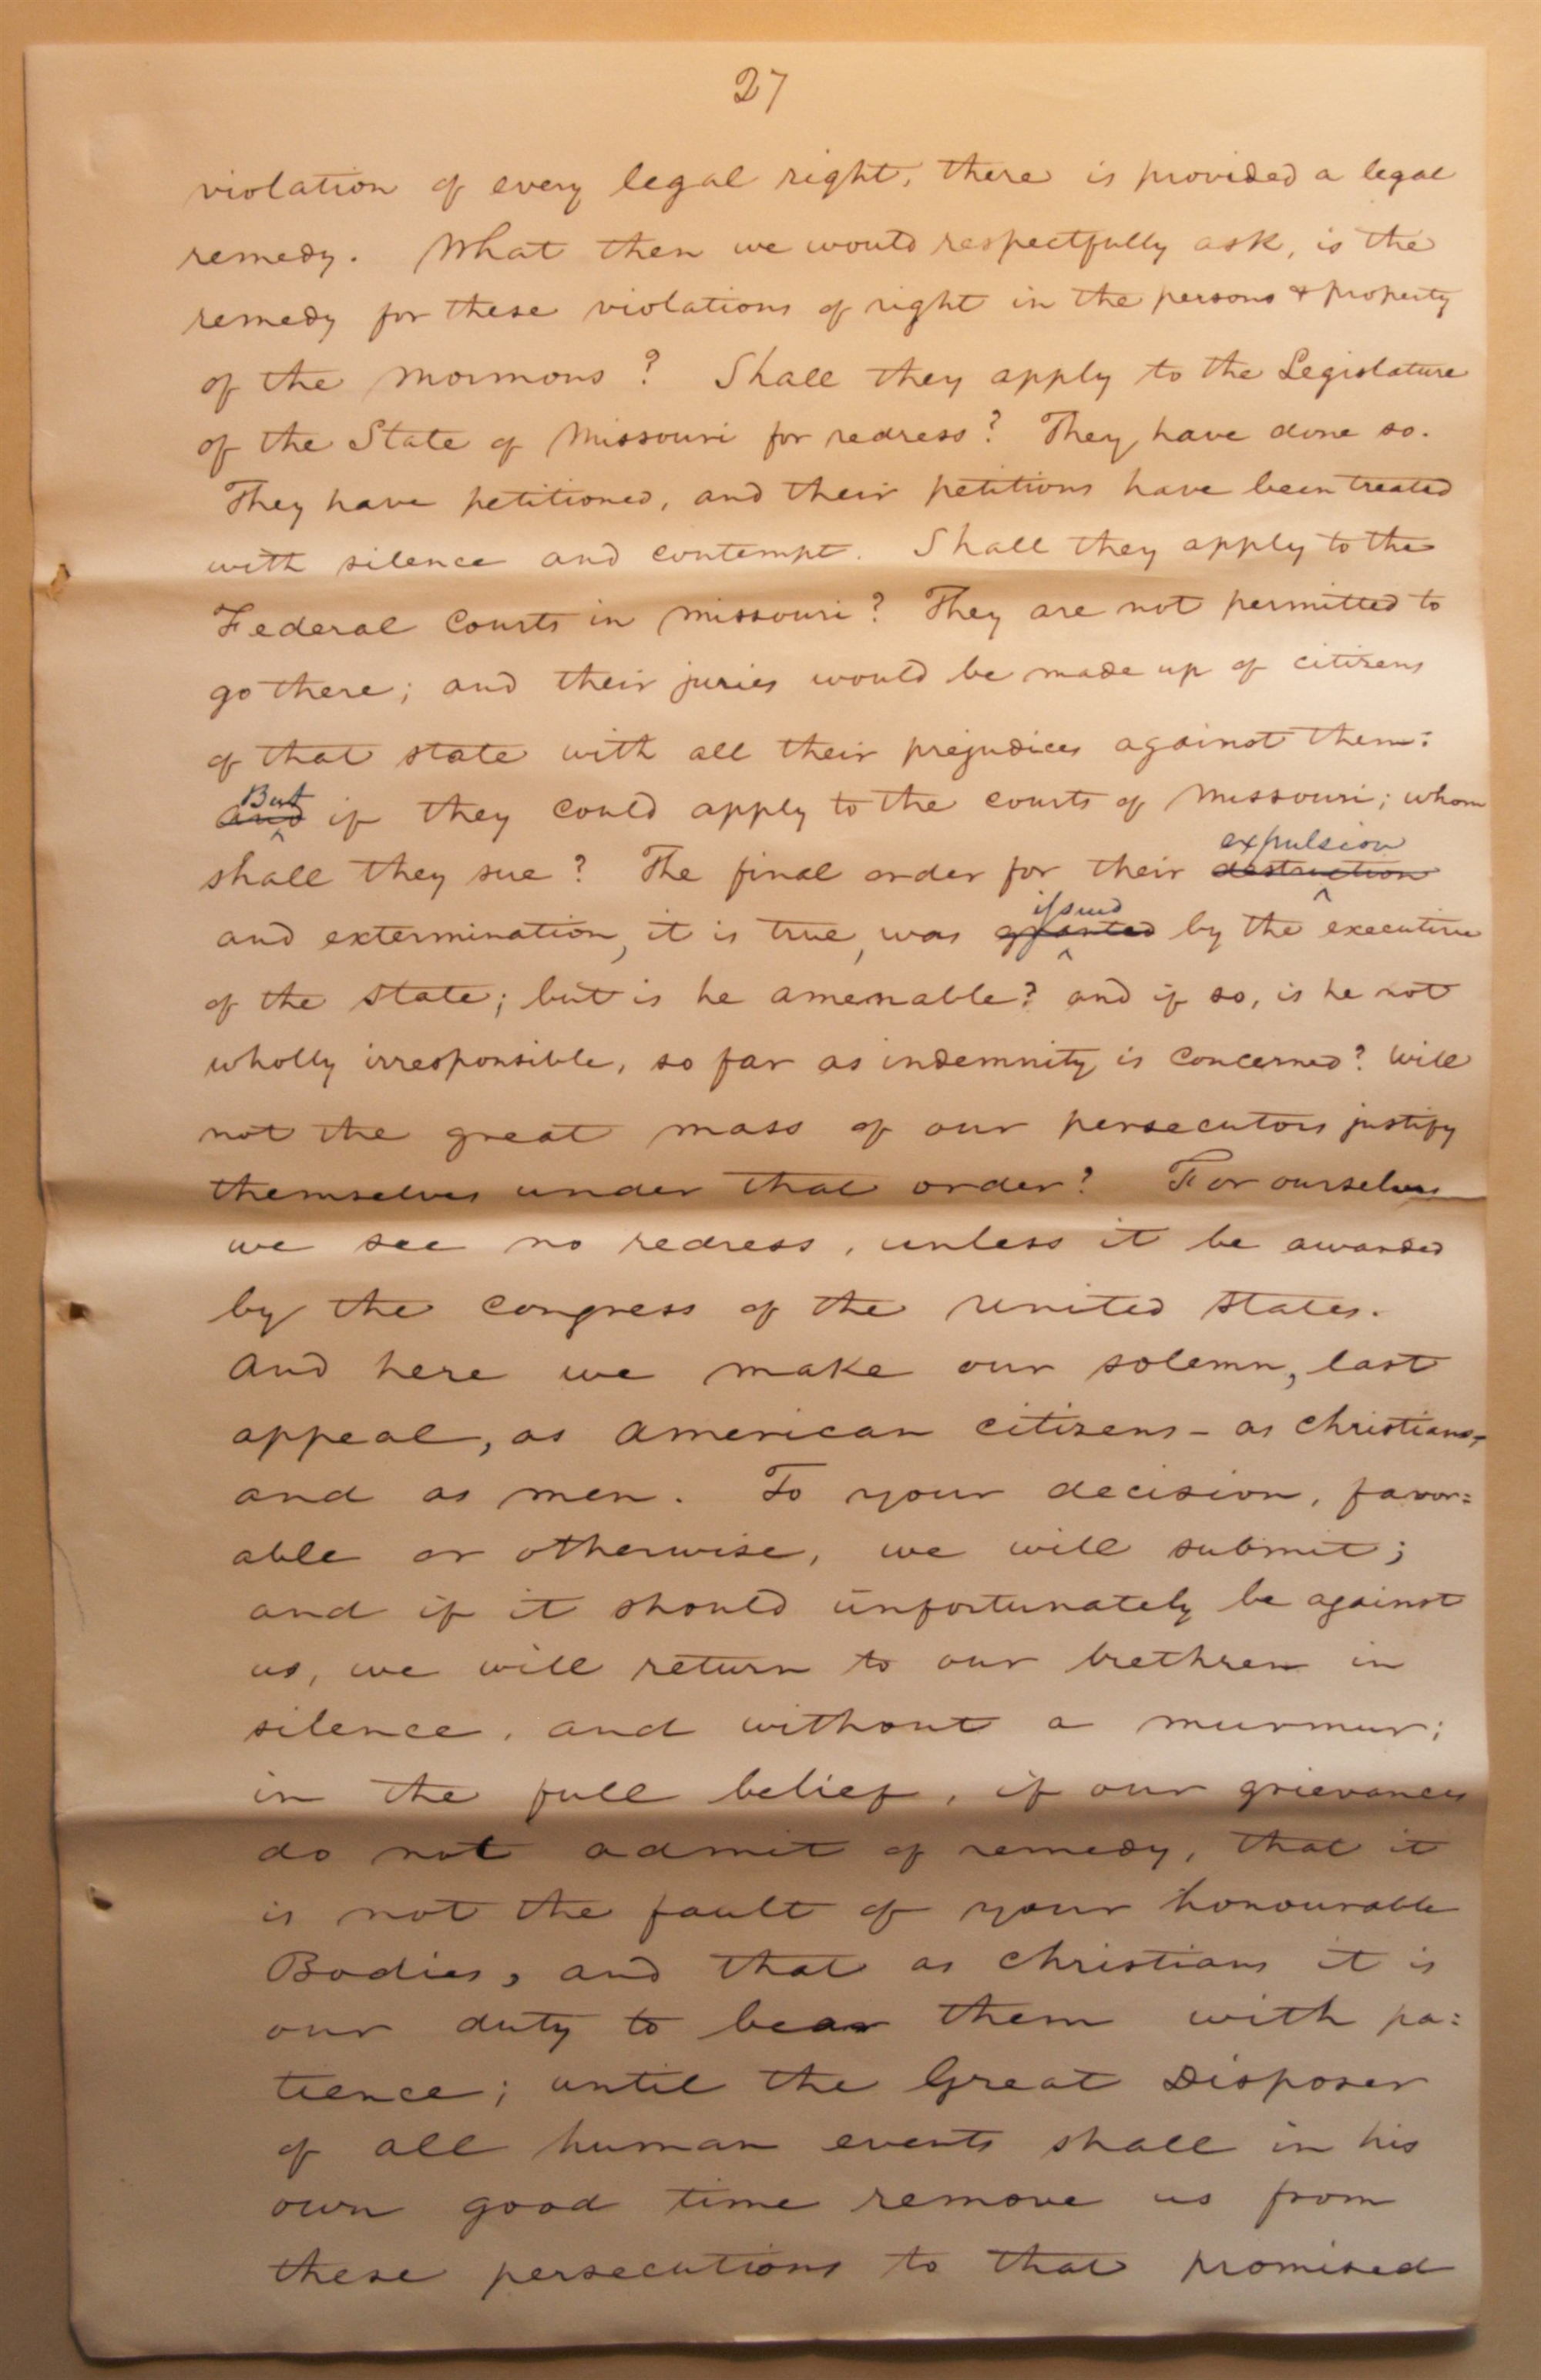 27
violation of every legal right, there is provided a legal
remedy. What then we would respectfully ask, is the
remedy for these violations of right in the persons & property
of the Mormons? Shall they apply to the Legislature
of the State of Missouri for redress? They have done so.
They have petitioned, and their petitions have been treated
with silence and contempt. Shall they apply to the
Federal Courts in Missouri? They are not permitted to
go there; and their juries would be made up of citizens
of that state with all their prejudices against them:
But
and if they could apply to the courts of Missouri; whom
expulsion
shall they sue? The final order for their destruction
issued
and extermination, it is true, was granted by the executive
of the state; but is he amenable? and if so, is he not
wholly irresponsible, so far as indemnity is concerned? Will
not the great mass of our persecutors justify
themselves under that order? For ourselves
we see no redress, unless it be awarded
by the Congress of the United States.
And here we make our solemn, last
appeal, as American citizens - as Christians,
and as men. To your decision, favor=
able or otherwise, we will submit;
and if it should unfortunately be against
us, we will return to our brethren in
silence, and without a murmur;
in the full belief, if our grievances
do not admit of remedy, that it
is not the fault of your honourable
Bodies, and that as Christians it is
our duty to bear them with pa:
tience; until the Great Disposer
of all human events shall in his
own good time remove us from
these persecutions to that promised